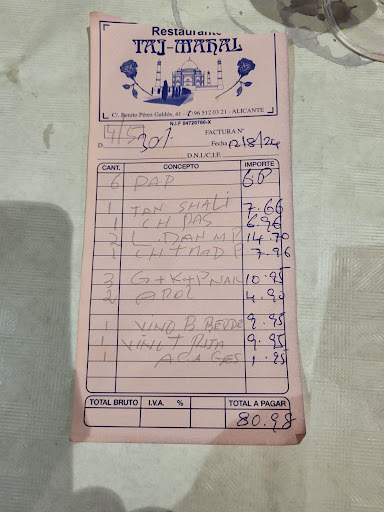 Restaurante
TAJ-MAHAL
C/. Benito Pérez Galdós, 41 - ✆ 96 512 03 21 - ALICANTE
N.I.F 54720760-X
4/5 FACTURA Nº
D. 30% Fecha 12/8/24
D.N.I./C.I.F.
CANT. CONCEPTO IMPORTE
6 PAP 6.0
1 TAN SHALI 7.66
1 CH PAS 6.96
2 L. DAN M P 14.70
1 CH T MAD P 7.96
3 G+K+P NAN 10.95
2 AROL 4.90
1 VINO B BERDE 9.95
1 VINO T RIJA 9.95
1 AGA GES 1.95
TOTAL BRUTO I.V.A. % TOTAL A PAGAR
80.98